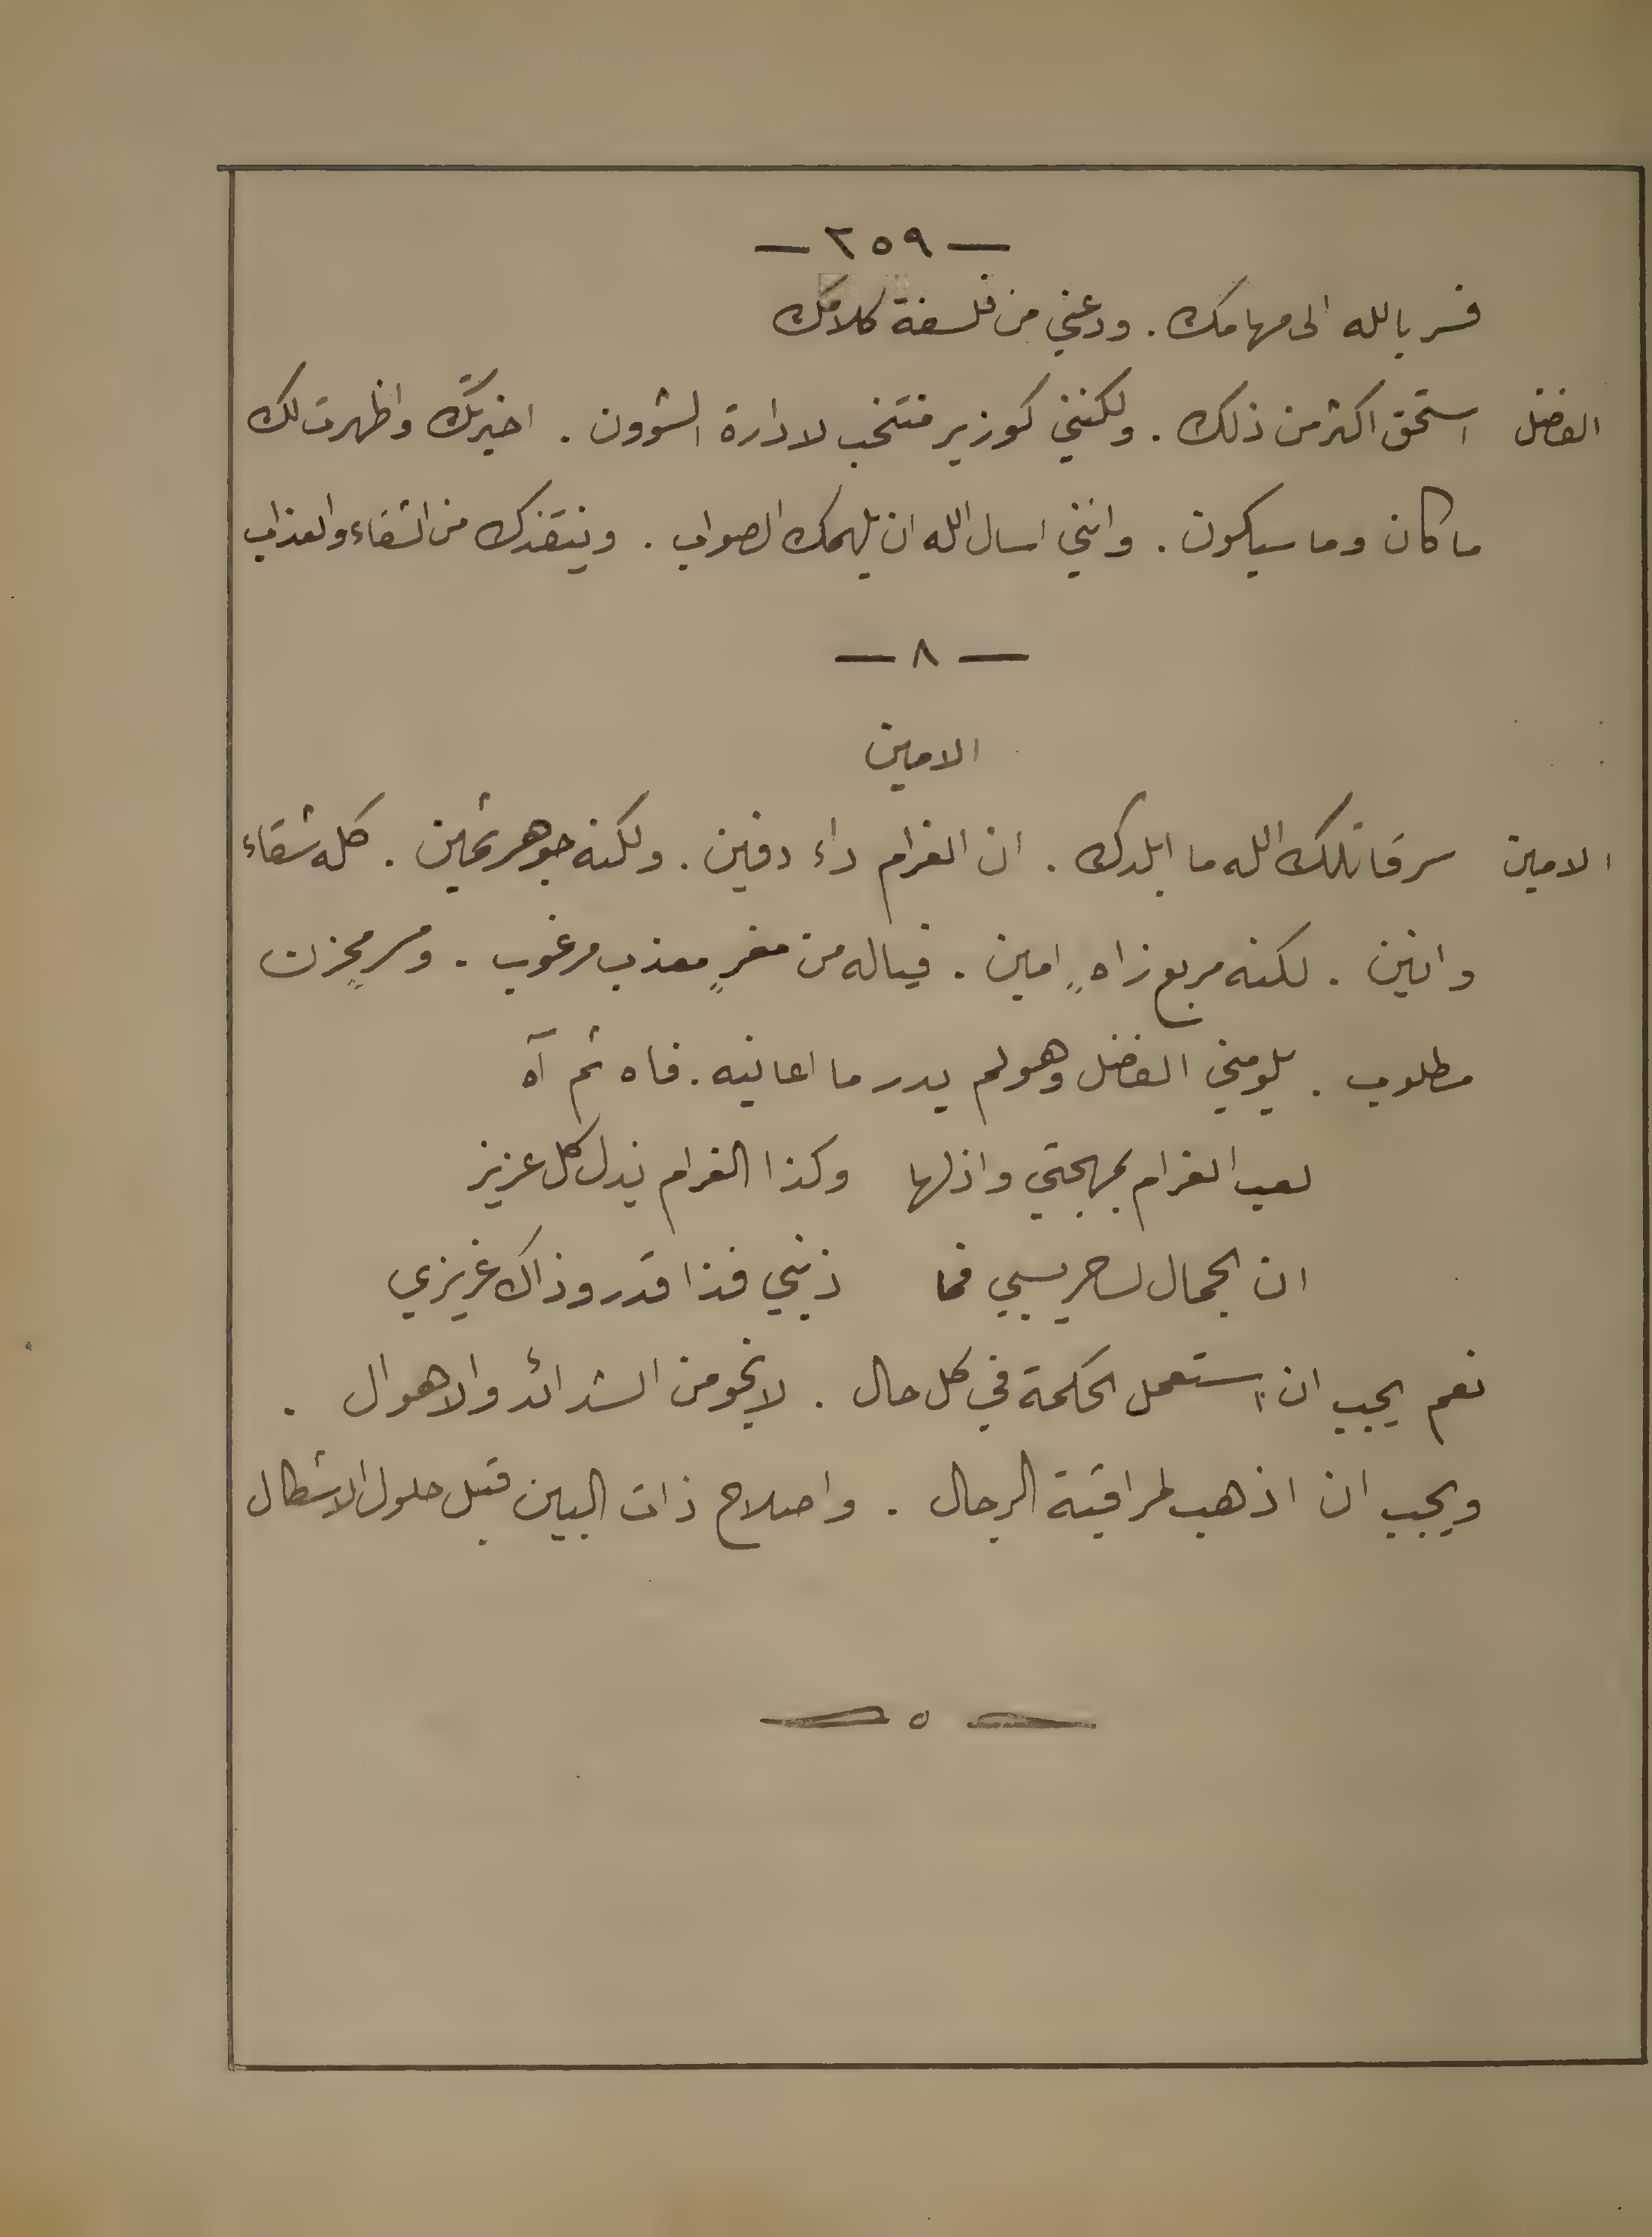 — ٢٥٩ —
فسر بالله الى مهامك . ودعني من فلسفة كلامك
الفضل استحق اكثر من ذلك . ولكنني كوزير منتخب لادارة الشوون . اخبرتك واظهرت لك
ما كان وما سيكون . وانني اسال الله ان يلهمك الصواب . وينقذك من الشقاء والعذاب
— ٨ —
الامين
الامين سر قاتلك الله ما ابلدك . ان الغرام داء دفين . ولكنه جوهر ثمين . كله شقاء
وانين . لكنه مربع زاهٍ امين . فياله من مغرٍ معذب مرغوب . ومر محزن
مطلوب . يلومني الفضل وهو لم يدر ما اعانيه . فاه ثم آه
لعب الغرام بمهجتي واذلها وكذا الغرام يذل كل عزيز
ان الجمال لساحر يسبي فما ذنبي فذا قدر وذاك غريزي
نعم يجب ان استعمل الحكمة في كل حال . لانجو من الشدائد والاهوال .
ويجب ان اذهب لمراقبة الرجال . واصلاح ذات البين قبل حلول الاشكال